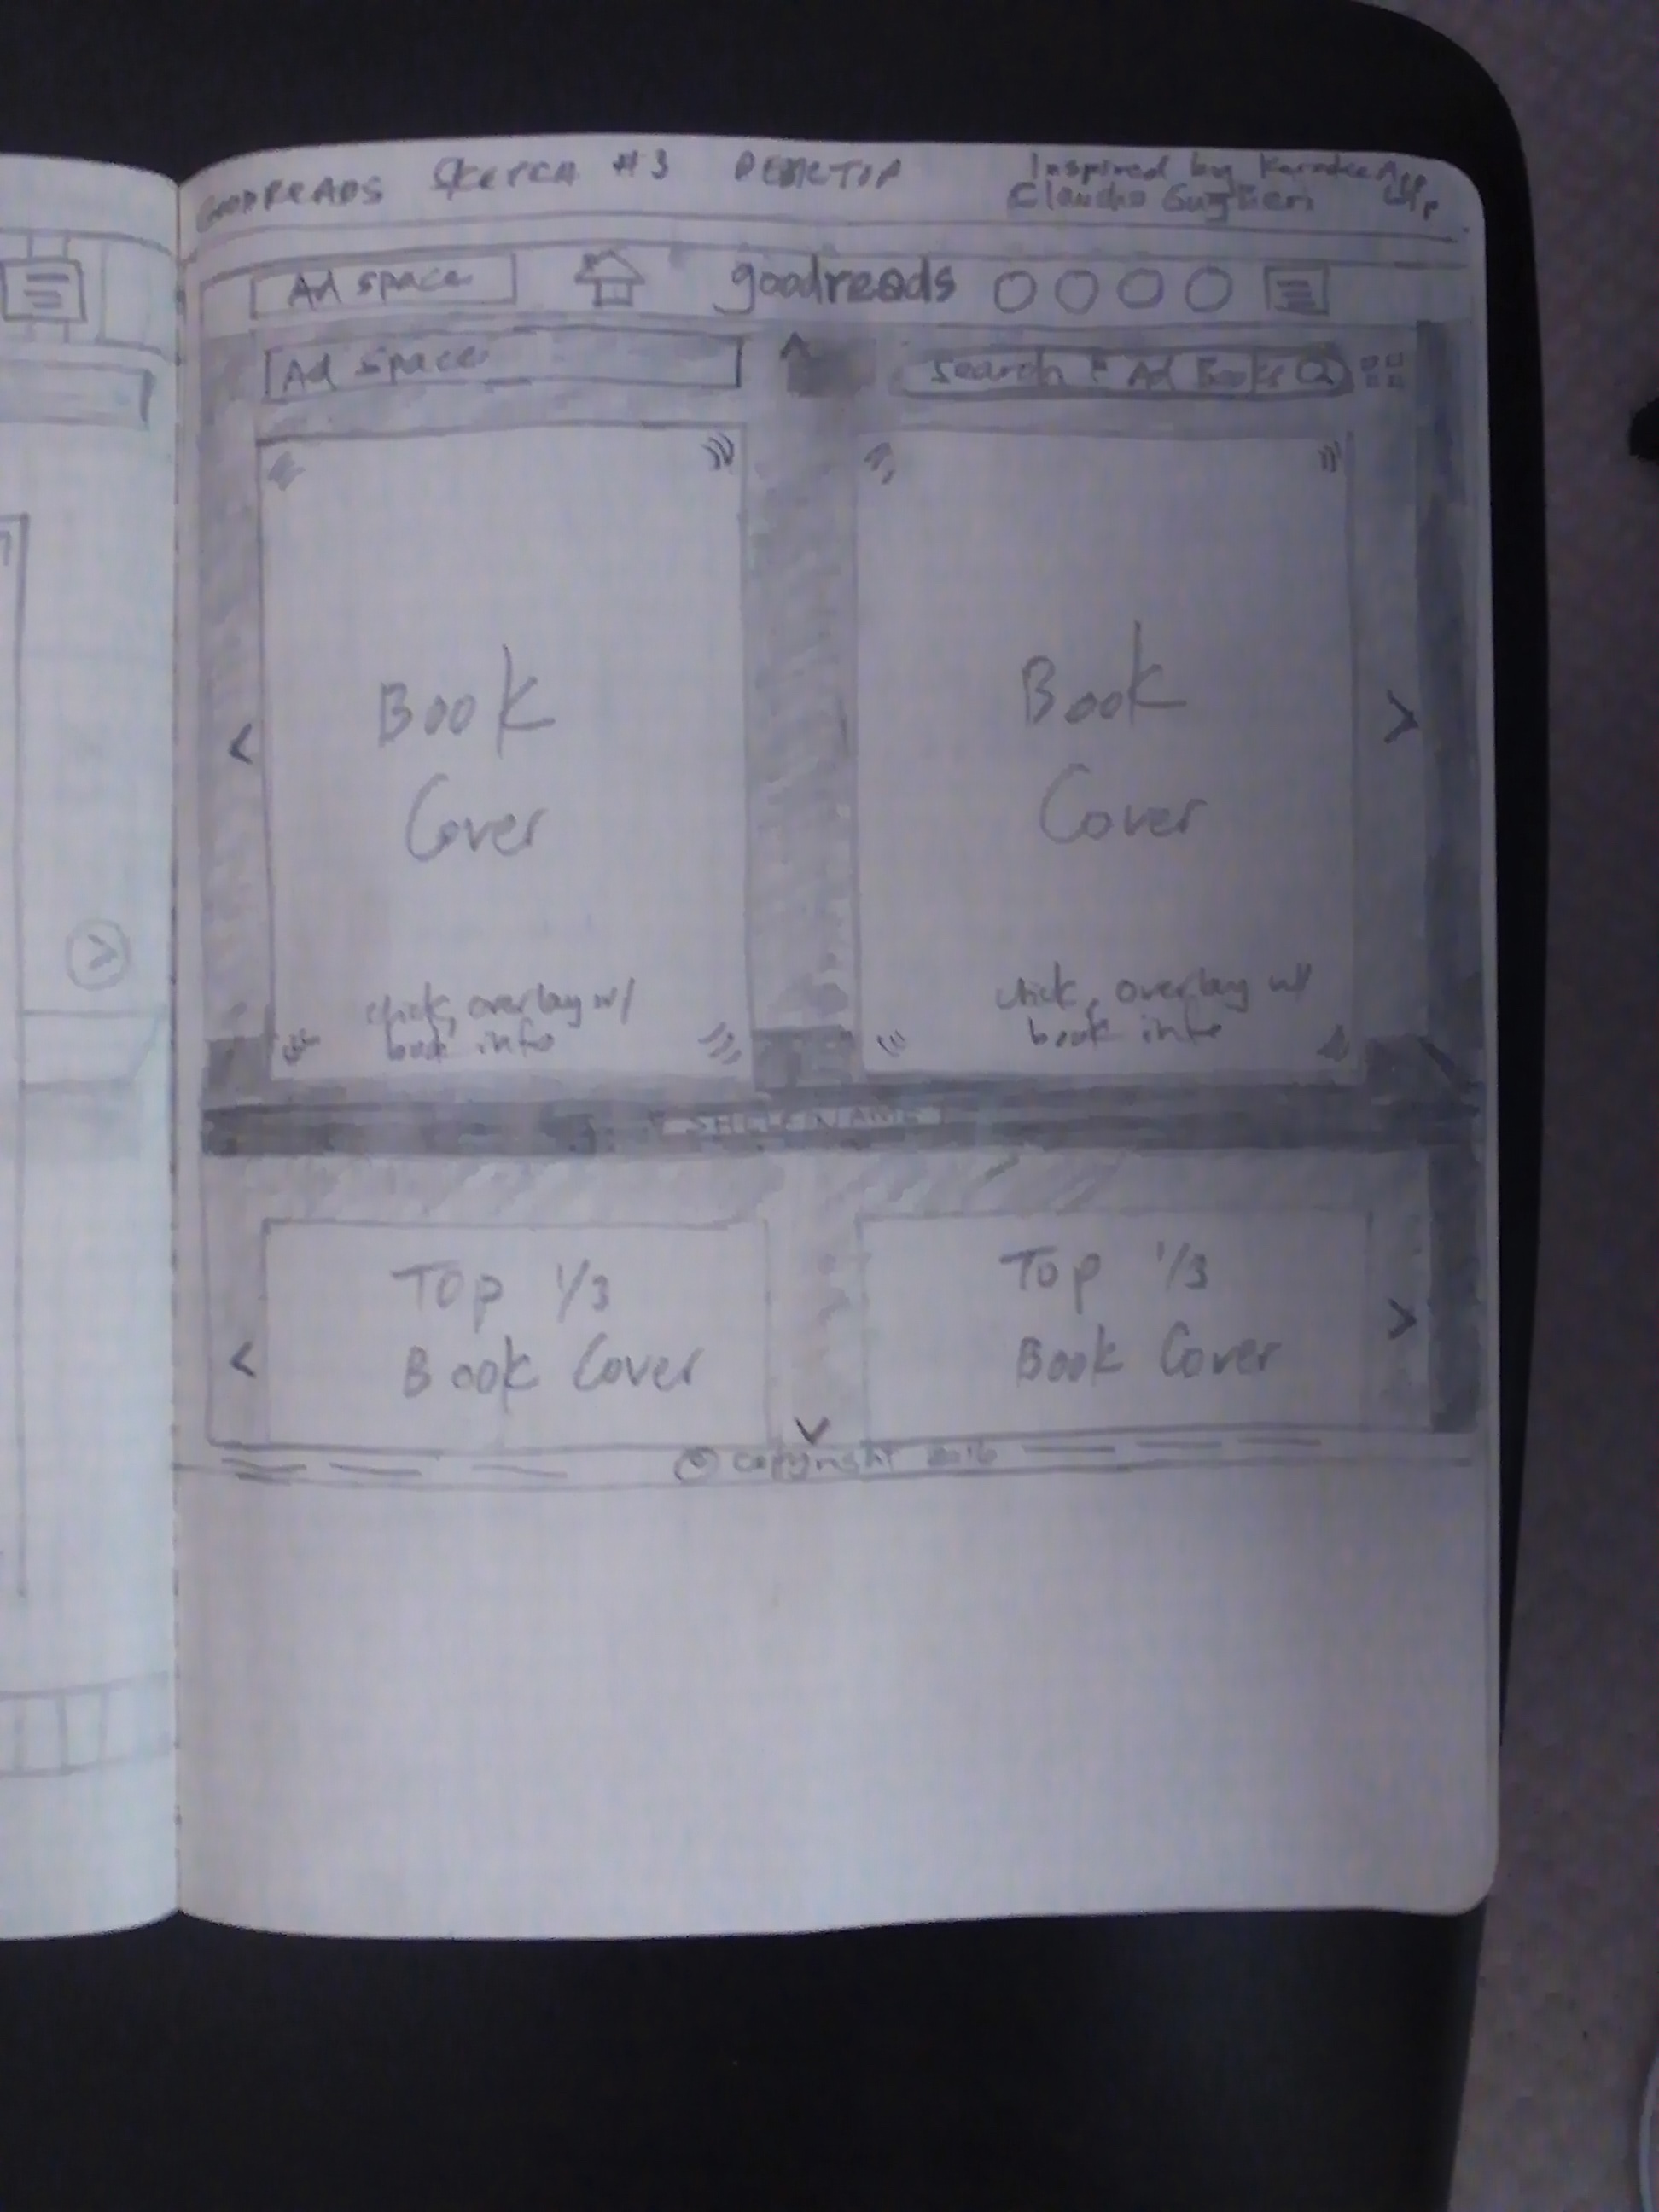 GOODREADS Sketch #3 DESKTOP
Inspired by
Claudio Guglieri
Ad space goodreads
Ad Space Search + Ad Books
Book Cover
Book Cover
click, overlay w/ book info
click, overlay w/ book info
SHELF NAME
Top 1/3 Book Cover
Top 1/3 Book Cover
© copyright 2016